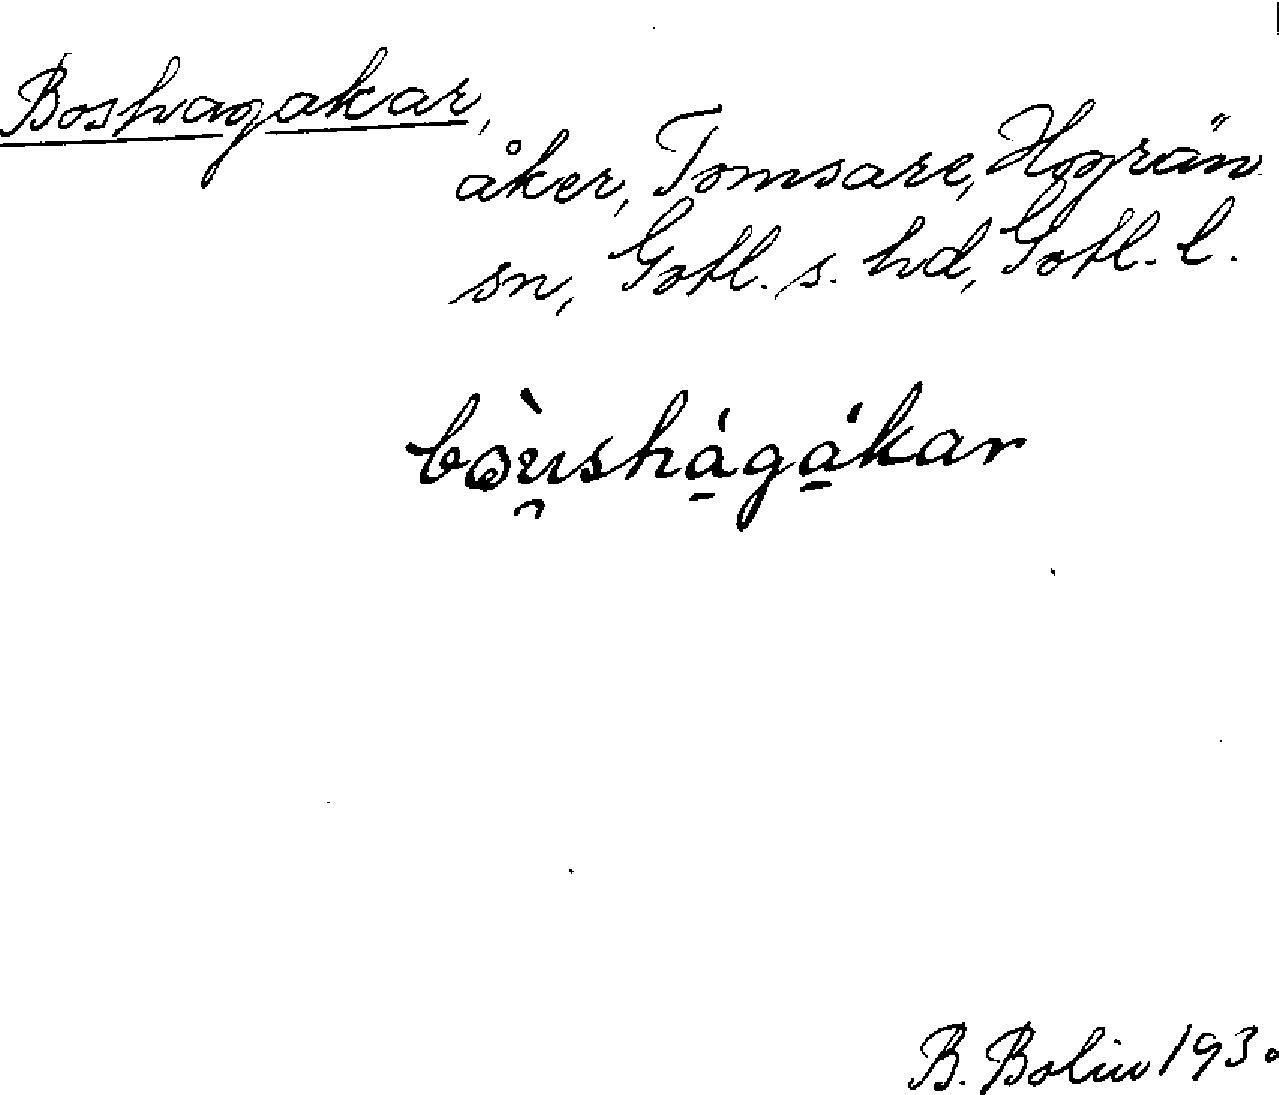 Boshagakar,
åker, Tomsare, Hogrän
sn, Gotl. s. hd, Gotl. l.
bòu̯shá̱gá̱kar
B. Bolin 1930